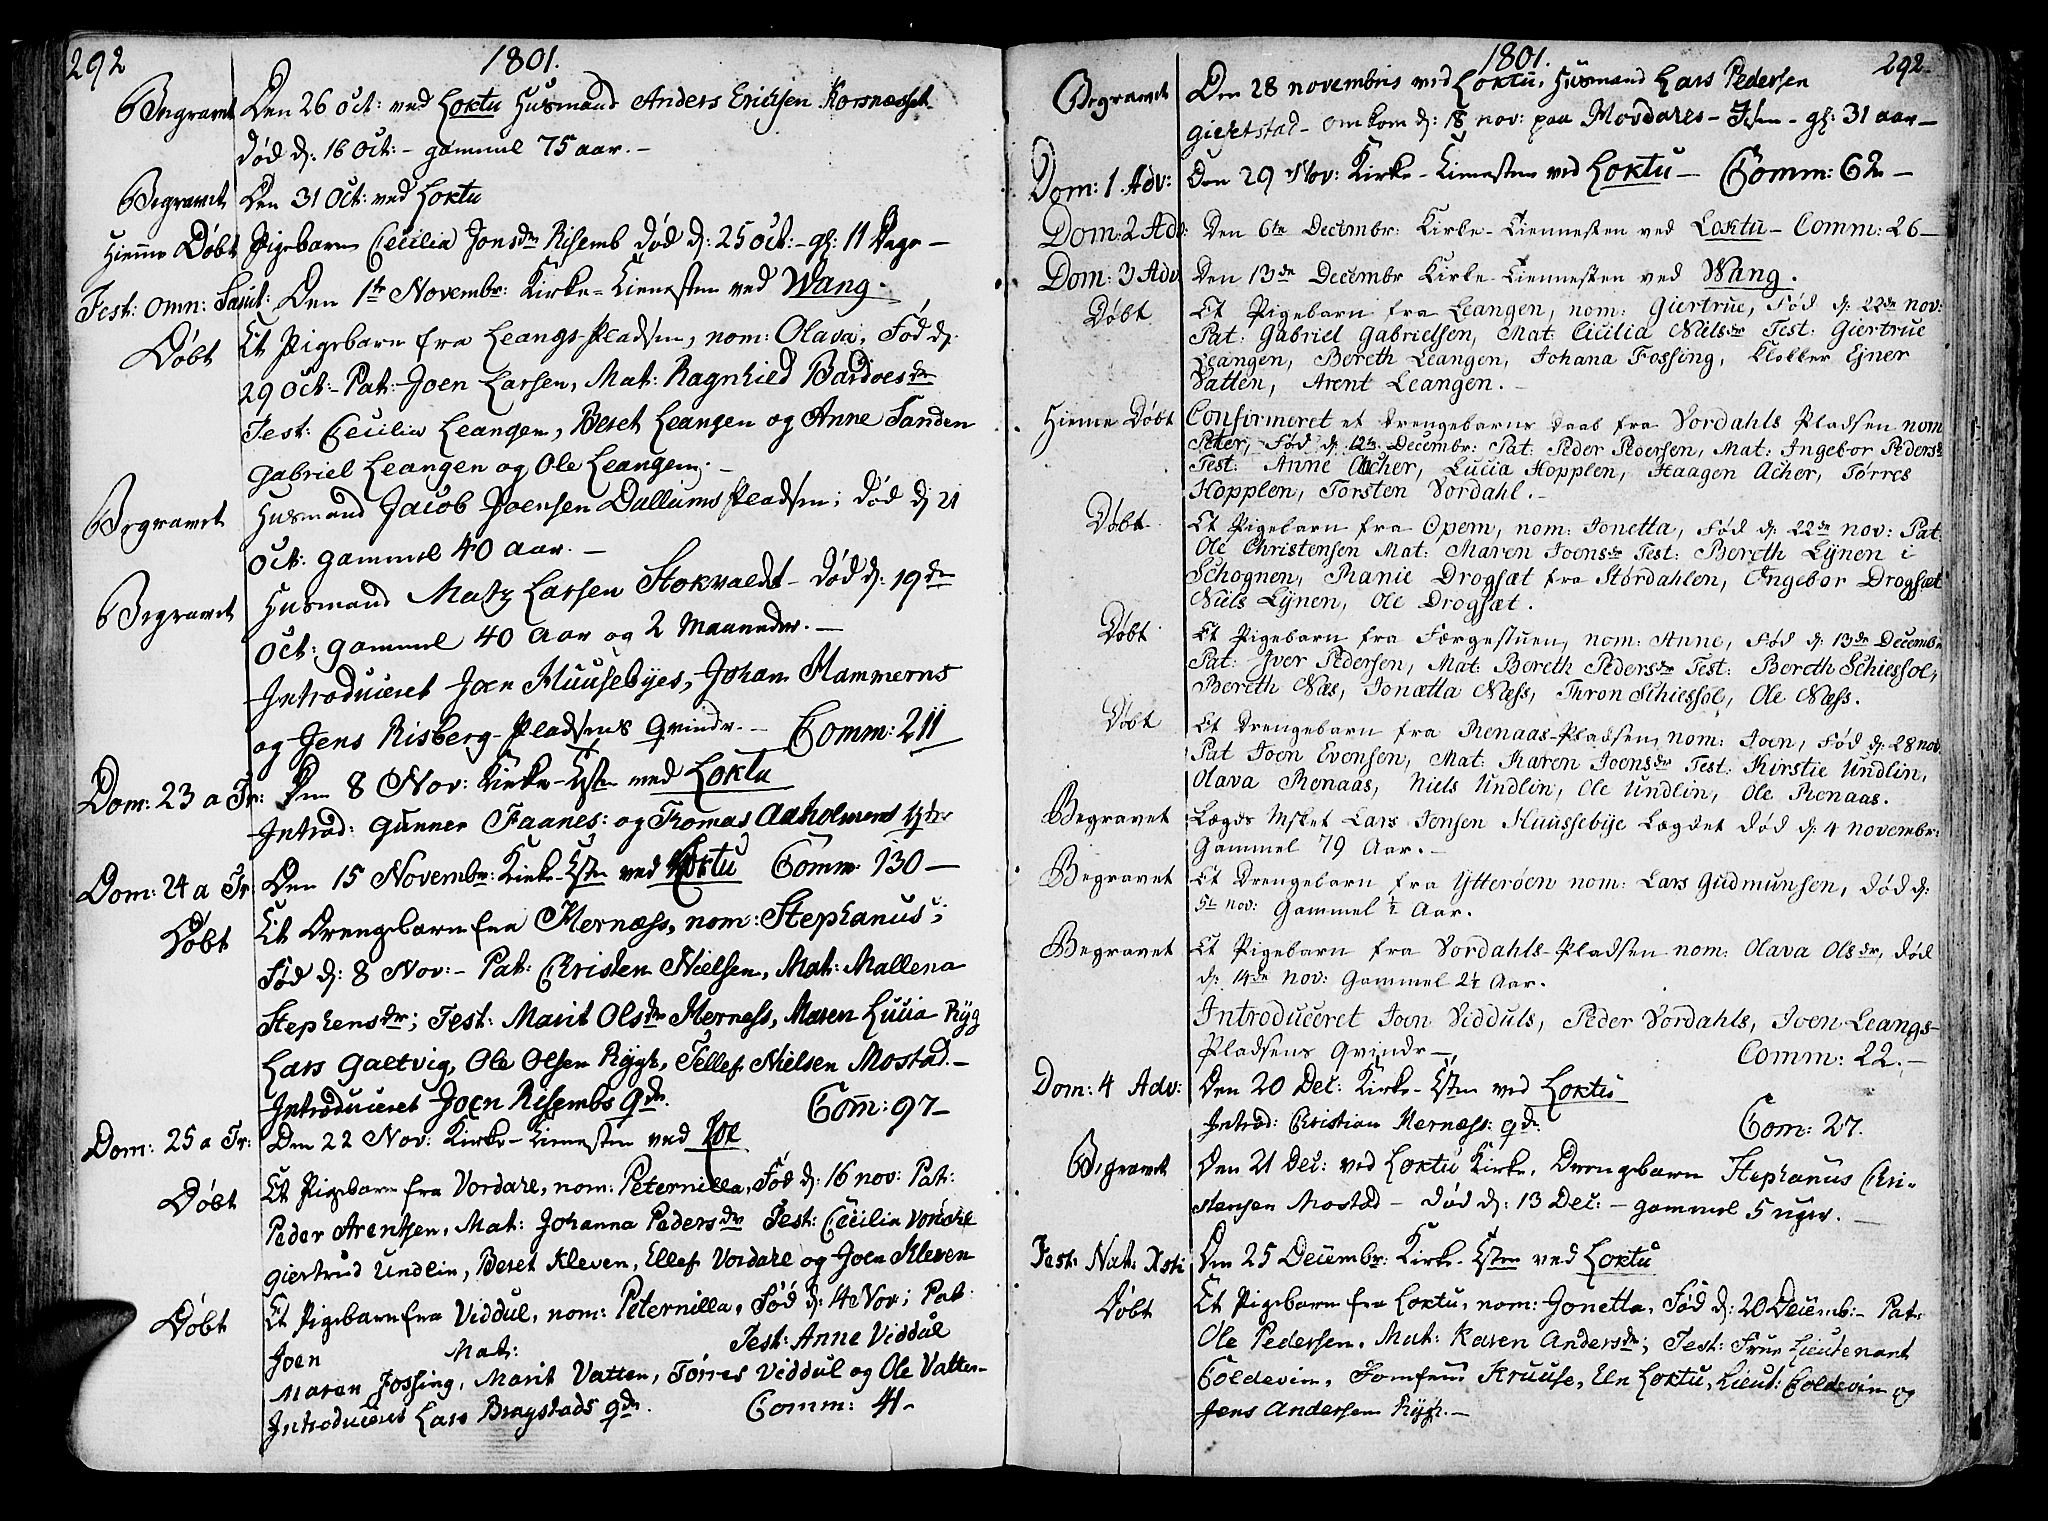 292
1801.
Begravet Den 26 Oct: ved Loktu Husmand Anders Erichsen Korsnæsset
død d: 16 Oct: - gammel 75 aar. -
Begravet Den 31 Oct: ved Loktu
Hieme Døbt Pigebarn Cecilia Jonsdr Risemb død d: 25 Oct: - gl: 11 Dage -
Fest: Omn: Sanct: Den 1te Novembr: Kirke-Tienesten ved Wang.
Døbt Et Pigebarn fra Leangs-Pladsen, nom: Olava, Fød d:
29 Oct: - Pat: Joen Larsen, Mat: Ragnhild Bardoesdr
Test: Cecilia Leangen, Beret Leangen og Anne Sanden
Gabriel Leangen og Ole Leangen. -
Begravet Husmand Jacob Joensen Dallums Pladsen; død d: 21
Oct: gammel 40 aar. -
Begravet Husmand Matz Larsen Stokvaldt - død d: 19de
Oct: gammel 40 Aar og 2 Maaneder. -
Introduceret Joen Huusebyes, Johan Hammerns
og Jens Risberg-Pladsens Qvinder. - Comm: 211
Dom: 23 a Tr: Den 8 Nov: Kirke-Tsten ved Loktu
Introd: Gunner Faanes: og Thomas Aaholmens Qdr
Dom: 24 a Tr: Den 15 Novembr: Kirke-Tsten ved Loktu Comm: 130 -
Døbt Et Drengebarn fra Hernæss, nom: Stephanus;
Fød d: 8 Nov: - Pat: Christen Nielsen, Mat: Mallena
Stephensdr; Test: Marit Olsdr Hernæss, Maren Lucia Ryg
Lars Galtvig, Ole Olsen Rygh, Tellef Nielsen Mostad. -
Introduceret Joen Risembs Qde. Com: 97 -
Dom: 25 a Tr: Den 22 Nov: Kirke-Tienesten ved Loe
Døbt Et Pigebarn fra Vordale, nom: Peternilla, Fød d: 16 nov: Pat:
Peder Arentsen, Mat: Johanna Pedersdr Test: Cecilia
Giertrud Undlin, Beret Kleven, Ellef Vordale og Joen Kleven
Døbt Et Pigebarn fra Viddul, nom: Peternilla, Fød d: 4 Nov; Pat:
Joen Mat: Test: Anne Viddul
Maren Fossing, Marit Vatten, Törres Viddul og Ole Vatten -
Introduceret Lars Bragstads Qde. Comm: 41 -
1801.
292.
Begravet Den 28 novembris ved Loktu, Husmand Lars Pedersen
Gieltstad - omkom d: 18 nov: paa - gl: 31 aar -
Dom: 1 Adv: Den 29 Nov: Kirke-Tienesten ved Loktu - Comm: 62 -
Dom: 2 Adv: Den 6te Decembr: Kirke-Tiennesten ved Loktu - Comm: 26 -
Dom: 3 Adv Den 13de Decembr Kirke-Tiennesten ved Wang.
Døbt Et Pigebarn fra Leangen, nom: Giertrue, Fød d: 22de nov:
Pat: Gabriel Gabrielsen, Mat: Cicilia Nielsdr Test: Giertrue
Leangen, Bereth Leangen, Johana Fossing, Klokker Ejner
Vatten, Arent Leangen. -
Hieme Døbt Confirmeret et Drengebarns Daab fra Vordahls Pladsen nom
Peter, Fød d: 12te Decembr: Pat: Peder Pedersen, Mat: Ingebor Pedersdr
Test: Anne Acher, Lucia Hopplen, Haagen Acher, Törres
Hopplen, Torsten Vordahl. -
Døbt Et Pigebarn fra Opem, nom: Jonetta, Fød d: 22de nov: Pat:
Ole Christensen Mat: Maren Joensdr Test: Bereth Lynen i
Schognen, Ranie Drogsæt fra Størdahlen, Ingebor Drogsæt
Niels Lynen, Ole Drogsæt.
Døbt Et Pigebarn fra Færgestuen, nom: Anne, Fød d: 13de Decembr
Pat: Jver Pedersen, Mat: Bereth Pedersdr Test: Bereth Schiessol,
Bereth Næs, Jonætta Næss, Thron Schiessol, Ole Næss.
Døbt Et Drengebarn fra Renaas-Pladsen, nom: Joen, Fød d: 28 nov:
Pat Joen Evensen, Mat: Karen Joensdr Test: Kirstie Undlin,
Olava Renaas, Niels Undlin, Ole Undlin, Ole Renaas.
Begravet Lægds Lars Jensen Huussebye Lægdet død d: 4 novembr:
Gammel 79 Aar. -
Begravet Et Drengebarn fra Ytterøen nom: Lars Gudmunsen, død d:
5te nov: Gammel ½ Aar.
Begravet Et Pigebarn fra Vordahls-Pladsen nom: Olava Olsdr, død
d: 14de nov: Gammel 2½ Aar.
Introduceret Joen Vidduls, Peder Vordahls, Joen Leangs-
Pladsens Qvindr - Comm: 22. -
Dom: 4 Adv: Den 20 Dec: Kirke-Tsten ved Loktu
Introd: Christian Hernæss: Qde. Com: 27.
Begravet Den 21 Dec: ved Loktu Kirke, Drengebarn Stephanus Chri-
stensen Mostad - død d: 13 Dec: - gammel 5 uger. -
Fest: Nat: Xsti Den 25 Decembr: Kirke-Tsten ved Loktu
Døbt Et Pigebarn fra Loktu, nom: Jonetta, Fød d: 20 Decemb: - Pat:
Ole Pedersen, Mat: Karen Andersdr; Test: Frue Lieutenant
Coldevin, Jomfrue Kruuse, Eln Loktu, Lieut: Coldevin og
Jens Andersen Rygh. -